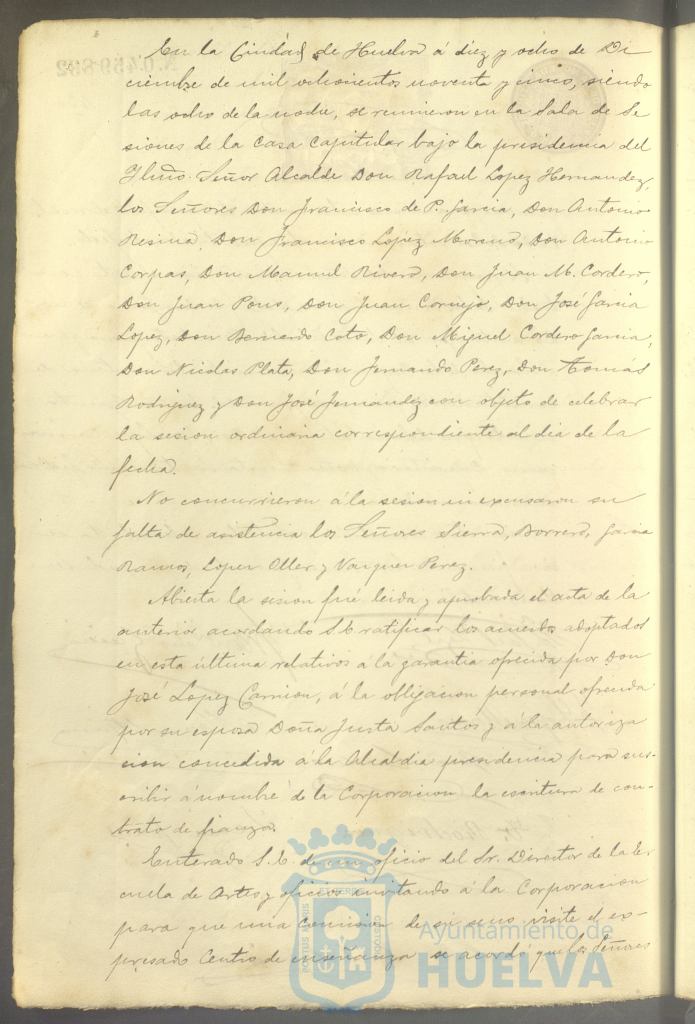 En la Ciudad de Huelva á diez y ocho de Di
ciembre de mil ochocientos noventa y cinco, siendo
las ocho de la noche, se reunieron en la Sala de Se
siones de la Casa Capitular bajo la presidencia del
Iltmo. Señor Alcalde Don Rafael Lopez Hernandez,
los Señores Don Francisco de P. Garcia, Don Antonio
Resina, Don Francisco López Moreno, Don Antonio
Corpas, Don Manuel Rivero, Don Juan M. Cordero,
Don Juan Pons, Don Juan Cornejo, Don José Garcia
Lopez, Don Bernardo Coto, Don Miguel Cordero Garcia,
Don Nicolas Plata, Don Fernando Perez, Don Tomás
Rodriguez y Don José Fernandez con objeto de celebrar
la sesion ordinaria correspondiente al dia de la
fecha.
No concurrieron á la sesion ni excusaron su
falta de asistencia los Señores Sierra, Borrero, Garcia
Ramos, Lopez Oller y Vazquez Perez.
Abierta la sesion fué leida y aprobada el acta de la
anterior acordando S.E. ratificar los acuerdos adoptados
en esta última relativos á la garantia ofrecida por Don
José Lopez Carrion, á la obligacion personal ofrecida
por su esposa Doña Justa Santos y á la autoriza
cion concedida á la Alcaldia presidencia para sus-
cribir á nombre de la Corporacion la escritura de con-
trato de fianza.
Enterado S.E. de un oficio del Sr. Director de la Es
cuela de Artes y oficios invitando á la Corporacion
para que una Comision de su seno visite el ex-
presado Centro de enseñanza se acordó que los Señores
Ayuntamiento de
HUELVA